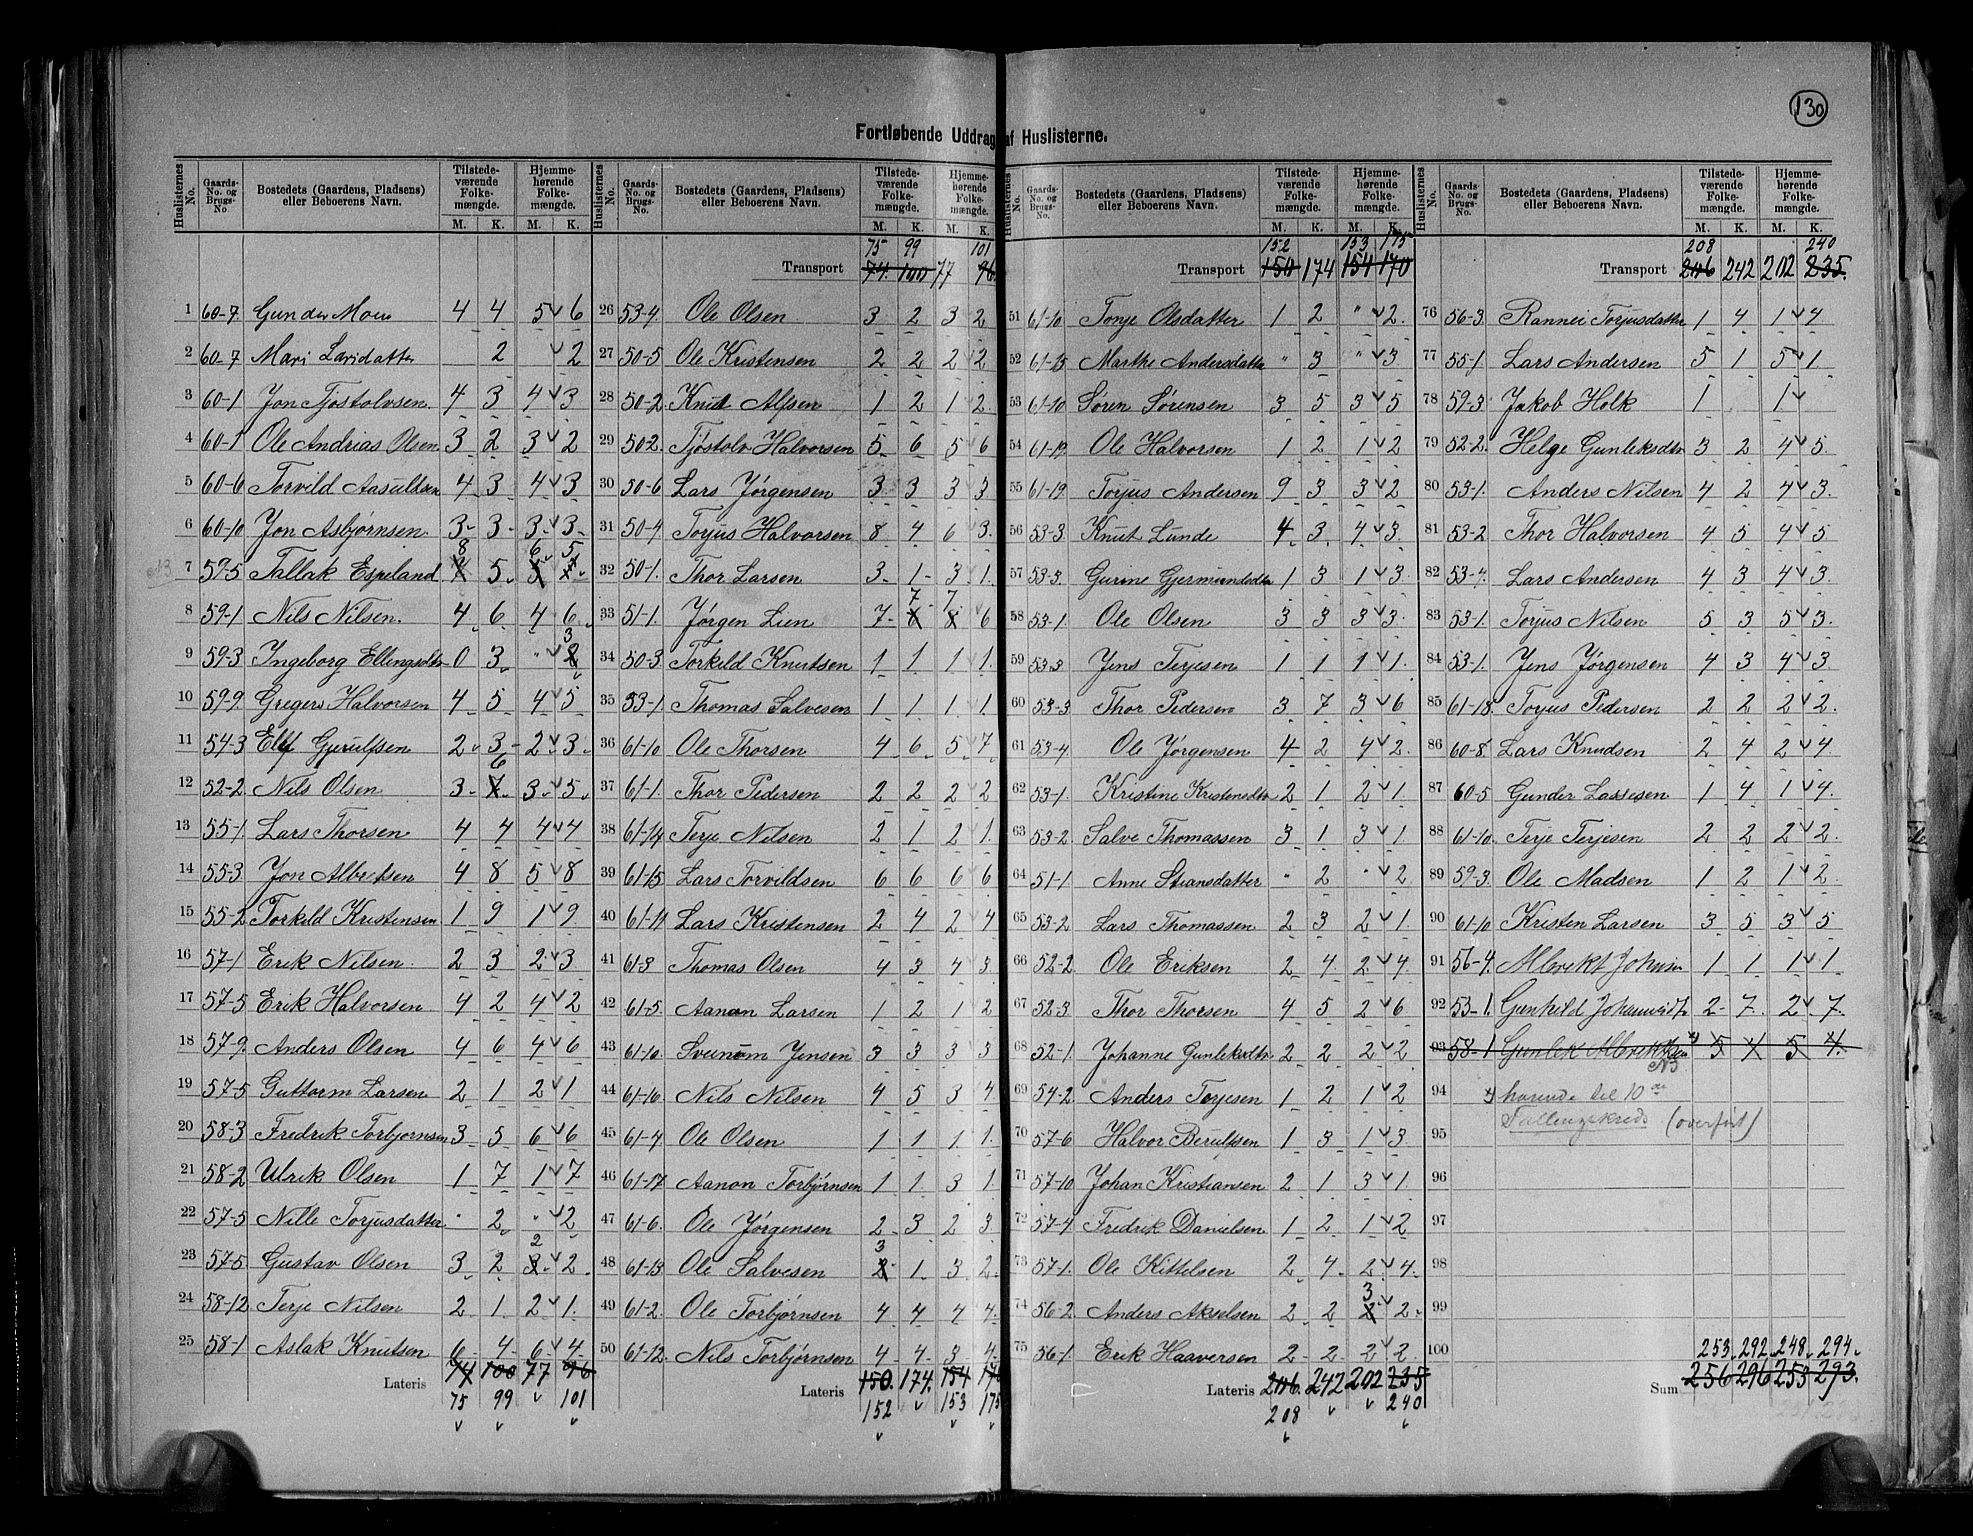 130
Fortløbende Uddrag af Huslisterne.
Huslisternes No. | Gaards-No. og Brugs-No. | Bostedets (Gaardens, Pladsens) eller Beboerens Navn. | Tilstedeværende Folkemængde. M. K. | Hjemmehørende Folkemængde. M. K.
1 60-7 Gunder Moen 4 4 5 6
2 60-7 Mari Larsdatter 2 2
3 60-1 Jon Tjøstolvsen 4 3 4 3
4 60-1 Ole Andrias Olsen 3 2 3 2
5 60-6 Torvild Aasuldsen 4 3 4 3
6 60-10 Jon Asbjørnsen 3 3 3 3
7 57-5 Tallak Espeland 8 5 6 5
8 59-1 Nils Nilsen 4 6 4 6
9 59-3 Ingeborg Ellingsdtr 0 3 " 3
10 59-9 Gregers Halvorsen 4 5 4 5
11 54-3 Elef Gjerulfsen 2 3 2 3
12 52-2 Nils Olsen 3 6 3 5
13 55-1 Lars Thorsen 4 4 4 4
14 55-3 Jon Albertsen 4 8 5 8
15 55-2 Torkild Kristensen 1 9 1 9
16 57-1 Erik Nilsen 2 3 2 3
17 57-5 Erik Halvorsen 4 2 4 2
18 57-9 Anders Olsen 4 6 4 6
19 57-5 Guttorm Larsen 2 1 2 1
20 58-3 Fredrik Torbjørnsen 3 5 6 6
21 58-2 Ulrik Olsen 1 7 1 7
22 57-5 Nille Torjusdatter " 2 " 2
23 57-5 Gustav Olsen 3 2 2 2
24 58-12 Terje Nilsen 2 1 2 1
25 58-1 Aslak Knutsen 6 4 6 4
Lateris 74 100 77 96
75 99 101
75 99 101
Transport 74 100 77 96
26 53-4 Ole Olsen 3 2 3 2
27 50-5 Ole Kristensen 2 2 2 2
28 50-2 Knut Alfsen 1 2 1 2
29 50-2 Tjøstolv Halvorsen 5 6 5 6
30 50-6 Lars Jørgensen 3 3 3 3
31 50-4 Torjus Halvorsen 8 4 6 3
32 50-1 Thor Larsen 3 1 3 1
33 51-1 Jørgen Lien 7 7 7 6
34 50-3 Torkild Knutsen 1 1 1 1
35 53-1 Thomas Salvesen 1 1 1 1
36 61-10 Ole Thorsen 4 6 5 7
37 61-1 Thor Pedersen 2 2 2 2
38 61-14 Terje Nilsen 2 1 2 1
39 61-15 Lars Torvildsen 6 6 6 6
40 61-11 Lars Kristensen 2 4 2 4
41 61-3 Thomas Olsen 4 3 4 3
42 61-5 Aanon Larsen 1 2 1 2
43 61-10 Sveinom Jensen 3 3 3 3
44 61-10 Nils Nilsen 4 5 3 4
45 61-4 Ole Olsen 1 1 1 1
46 61-17 Aanon Torbjørnsen 1 1 3 1
47 61-6 Ole Jørgensen 2 3 2 3
48 61-13 Ole Salvesen 3 1 3 2
49 61-2 Ole Torbjørnsen 4 4 4 4
50 61-12 Nils Torbjørnsen 4 4 3 4
Lateris 150 174 154 170
152 153 175
152 153 175
Transport 150 174 154 170
51 61-10 Tonje Olsdatter 1 2 " 2
52 61-15 Marthe Andersdatter " 3 " 3
53 61-10 Søren Sørensen 3 5 3 5
54 61-19 Ole Halvorsen 1 2 1 2
55 61-19 Torjus Andersen 9 3 3 2
56 53-3 Knut Lunde 4 3 4 3
57 53-3 Gurine Gjermundsdtr 1 3 1 3
58 53-1 Ole Olsen 3 3 3 3
59 53-3 Jens Terjesen 1 1 1 1
60 53-3 Thor Pedersen 3 7 3 6
61 53-4 Ole Jørgensen 4 2 4 2
62 53-1 Kristine Kristensdtr 2 1 2 1
63 53-2 Salve Thomassen 3 1 3 1
64 51-1 Anne Stiansdatter " 2 " 2
65 53-2 Lars Thomassen 2 3 2 1
66 52-2 Ole Eriksen 2 4 2 4
67 52-3 Thor Thorsen 4 5 2 6
68 52-1 Johanne Gunleksdtr 2 2 2 2
69 54-2 Anders Torjesen 1 2 1 2
70 57-6 Halvor Berulfsen 1 3 1 3
71 57-10 Johan Kristiansen 2 1 3 1
72 57-4 Fredrik Danielsen 1 2 1 2
73 57-1 Ole Kittelsen 2 4 2 4
74 56-2 Anders Akselsen 2 2 3 2
75 56-1 Erik Haaversen 2 2 2 2
Lateris 206 242 202 235
208 240
208 240
Transport 206 242 202 235
76 56-3 Rannei Torjusdatter 1 4 1 4
77 55-1 Lars Andersen 5 1 5 1
78 59-3 Jakob Holk 1 1
79 52-2 Helge Gunleksdtr 3 2 4 5
80 53-1 Anders Nilsen 4 2 4 3
81 53-2 Thor Halvorsen 4 5 4 5
82 53-4 Lars Andersen 4 3 4 3
83 53-1 Torjus Nilsen 5 3 5 3
84 53-1 Jens Jørgensen 4 3 4 3
85 61-18 Torjus Pedersen 2 2 2 2
86 60-8 Lars Knudsen 2 4 2 4
87 60-5 Gunder Lassesen 1 4 1 4
88 61-10 Terje Terjesen 2 2 2 2
89 59-3 Ole Madsen 1 2 1 2
90 61-10 Kristen Larsen 3 5 3 5
91 56-4 Albrekt Johnsen 1 1 1 1
92 53-1 Gunhild Johannesd. 2 7 2 7
93 58-1 Gunlek Albrektsen 5 4 5 4
94 hørende til 10de
95 Tællingskreds (overført)
96
97
98
99
100
253 292 248 294
Sum 256 296 253 293